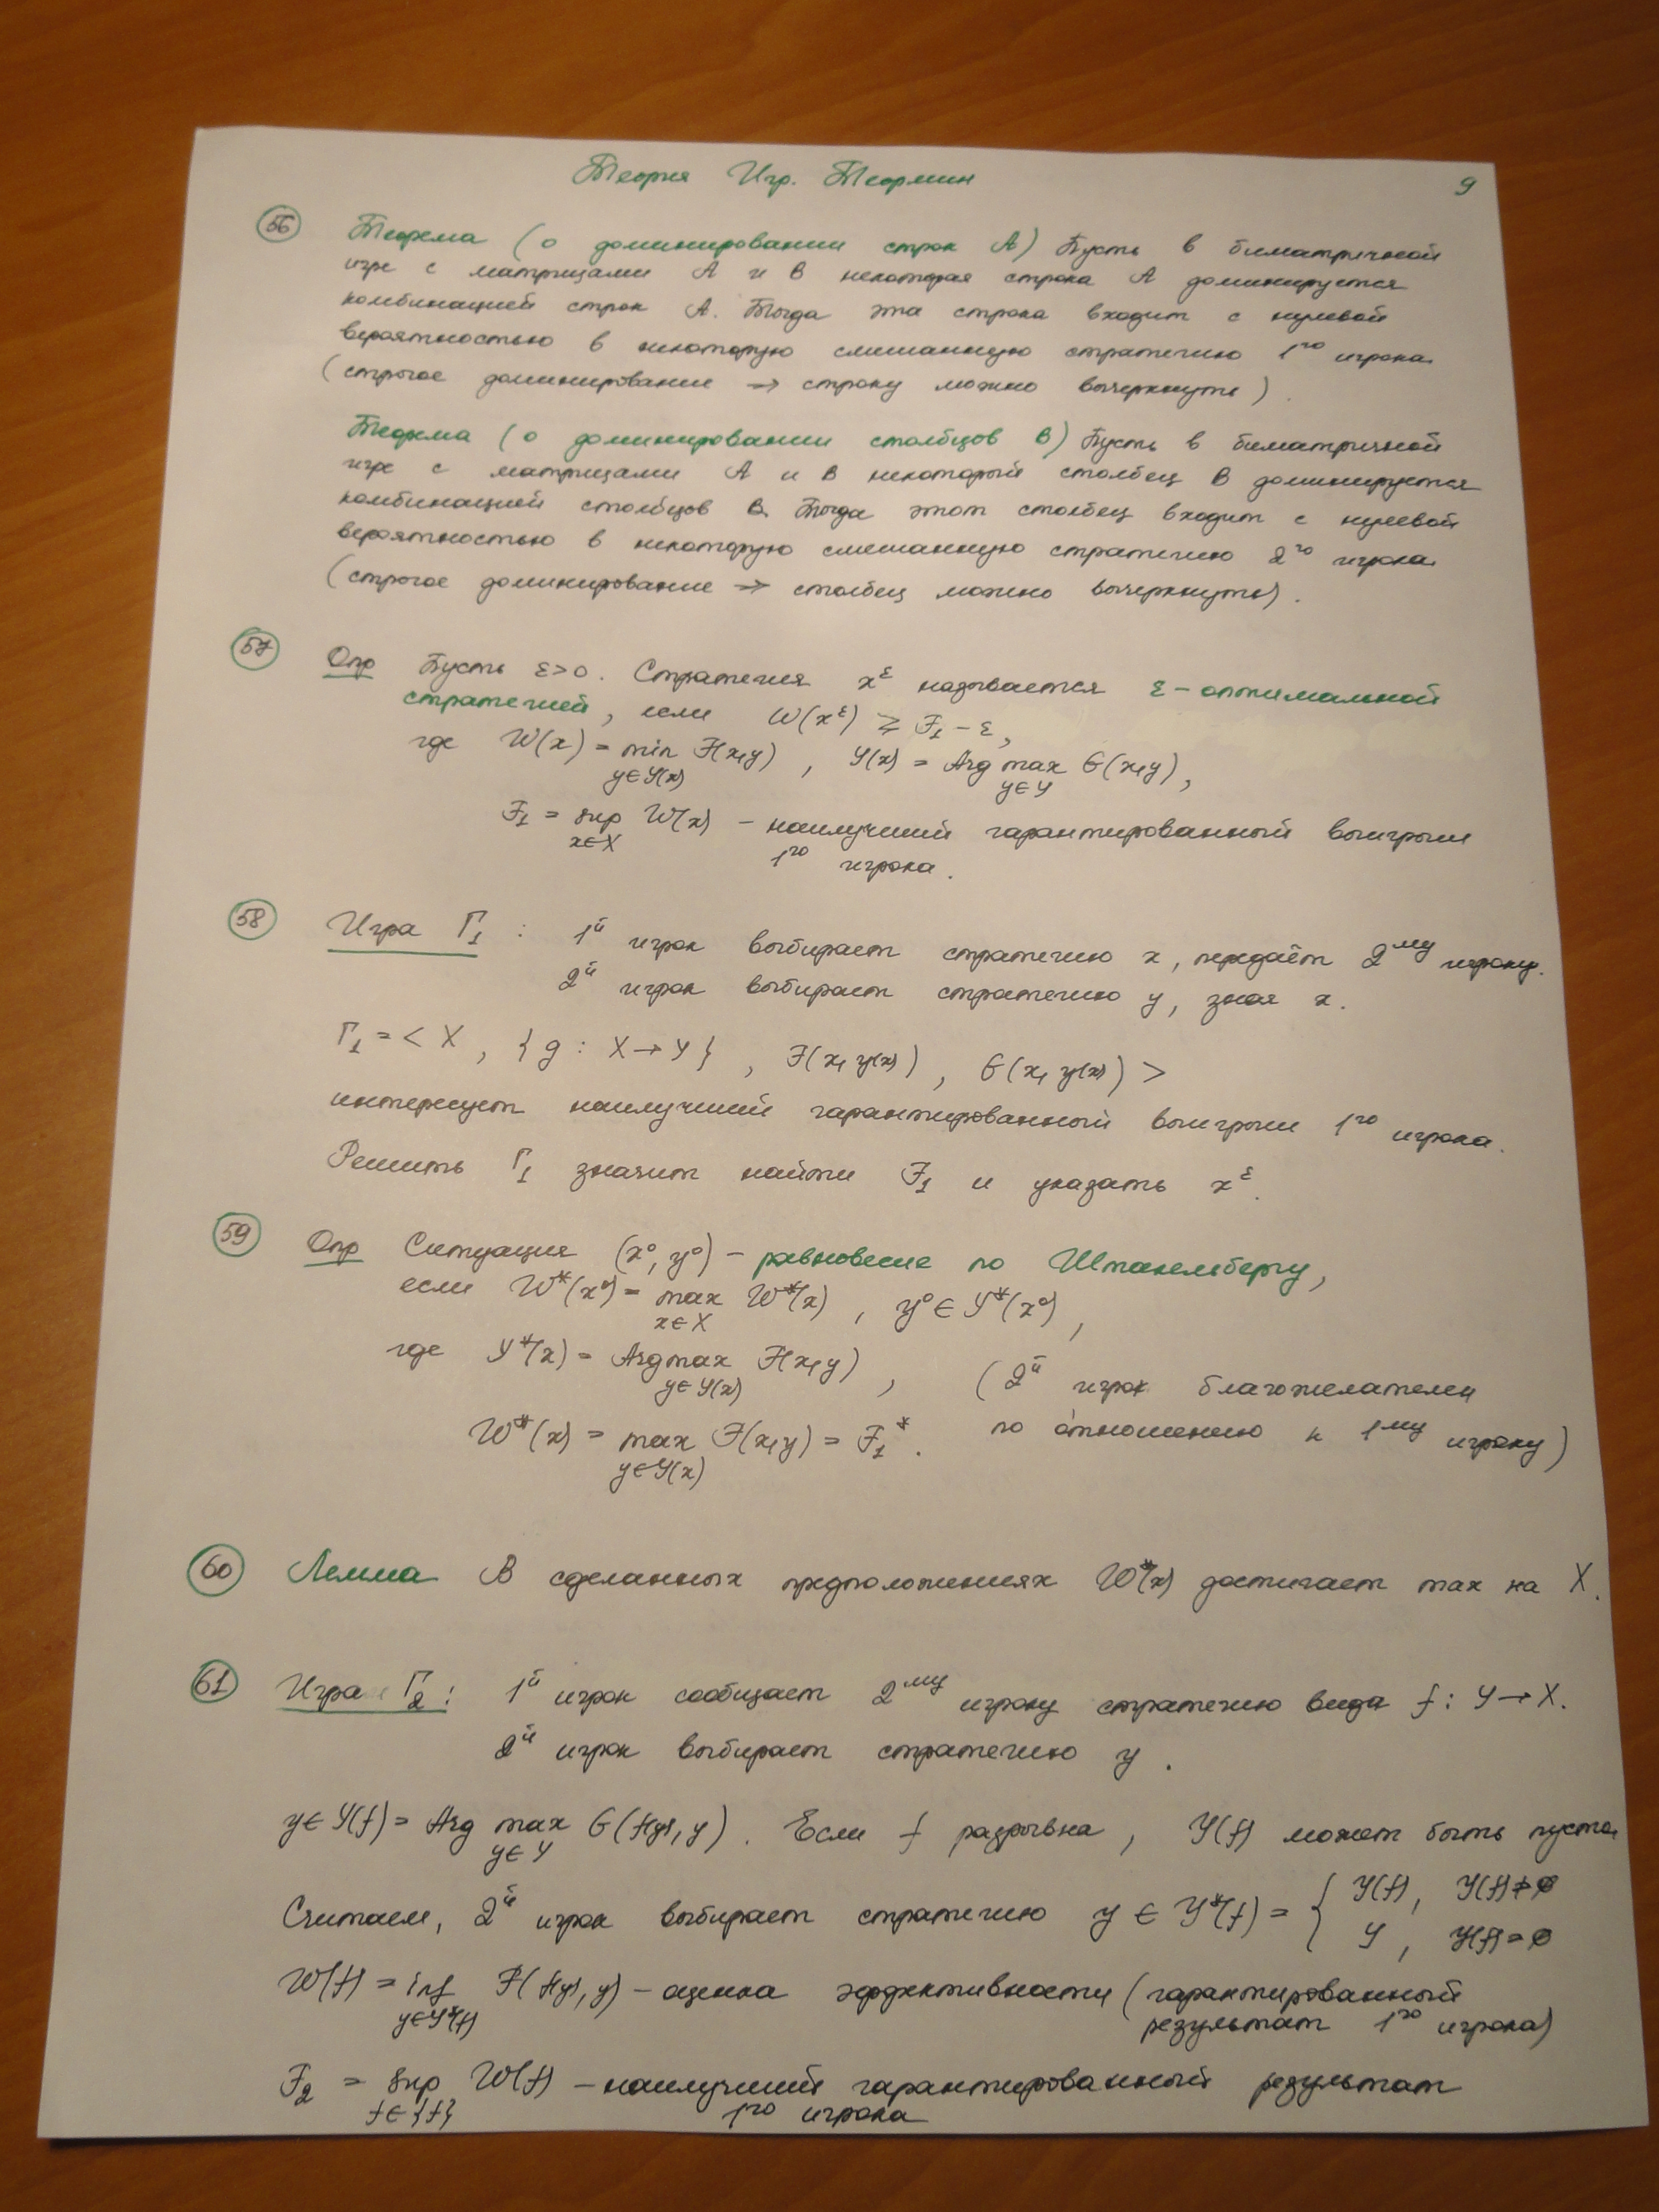 Теория Игр. Теормин 9
56 Теорема (о доминировании строк A) Пусть в биматричной
игре с матрицами A и B некоторая строка A доминируется
комбинацией строк A. Тогда эта строка входит с нулевой
вероятностью в некоторую смешанную стратегию 1го игрока.
(строгое доминирование → строку можно вычеркнуть).
Теорема (о доминировании столбцов B) Пусть в биматричной
игре с матрицами A и B некоторый столбец B доминируется
комбинацией столбцов B. Тогда этот столбец входит с нулевой
вероятностью в некоторую смешанную стратегию 2го игрока.
(строгое доминирование → столбец можно вычеркнуть).
57 Опр Пусть ε>0. Стратегия x^ε называется ε-оптимальной
стратегией, если W(x^ε) ⩾ F₁ - ε,
где W(x) = min F(x,y), Y(x) = Arg max G(x,y),
y∈Y(x) y∈Y
F₁ = sup W(x) - наилучший гарантированный выигрыш
x∈X 1го игрока.
58 Игра Γ₁: 1й игрок выбирает стратегию x, передаёт 2му игроку.
2й игрок выбирает стратегию y, зная x.
Γ₁ = < X, {g: X→Y}, F(x, y(x)), G(x, y(x)) >
интересует наилучший гарантированный выигрыш 1го игрока.
Решить Γ₁ значит найти F₁ и указать x^ε.
59 Опр Ситуация (x⁰, y⁰) - равновесие по Штакельбергу,
если W*(x⁰) = max W*(x), y⁰ ∈ Y*(x⁰),
x∈X
где Y*(x) = Argmax F(x,y), (2й игрок благожелателен
y∈Y(x)
W*(x) = max F(x,y) = F₁*. по отношению к 1му игроку)
y∈Y(x)
60 Лемма В сделанных предположениях W*(x) достигает max на X.
61 Игра Γ₂: 1й игрок сообщает 2му игроку стратегию вида f: Y→X.
2й игрок выбирает стратегию y.
y∈Y(f) = Arg max G(f(y), y). Если f разрывна, Y(f) может быть пусто.
y∈Y
Считаем, 2й игрок выбирает стратегию y ∈ Y*(f) = { Y(f), Y(f)≠∅
Y, Y(f)=∅
W(f) = inf F(f(y), y) - оценка эффективности (гарантированный
y∈Y*(f) результат 1го игрока)
F₂ = sup W(f) - наилучший гарантированный результат
f∈{f} 1го игрока